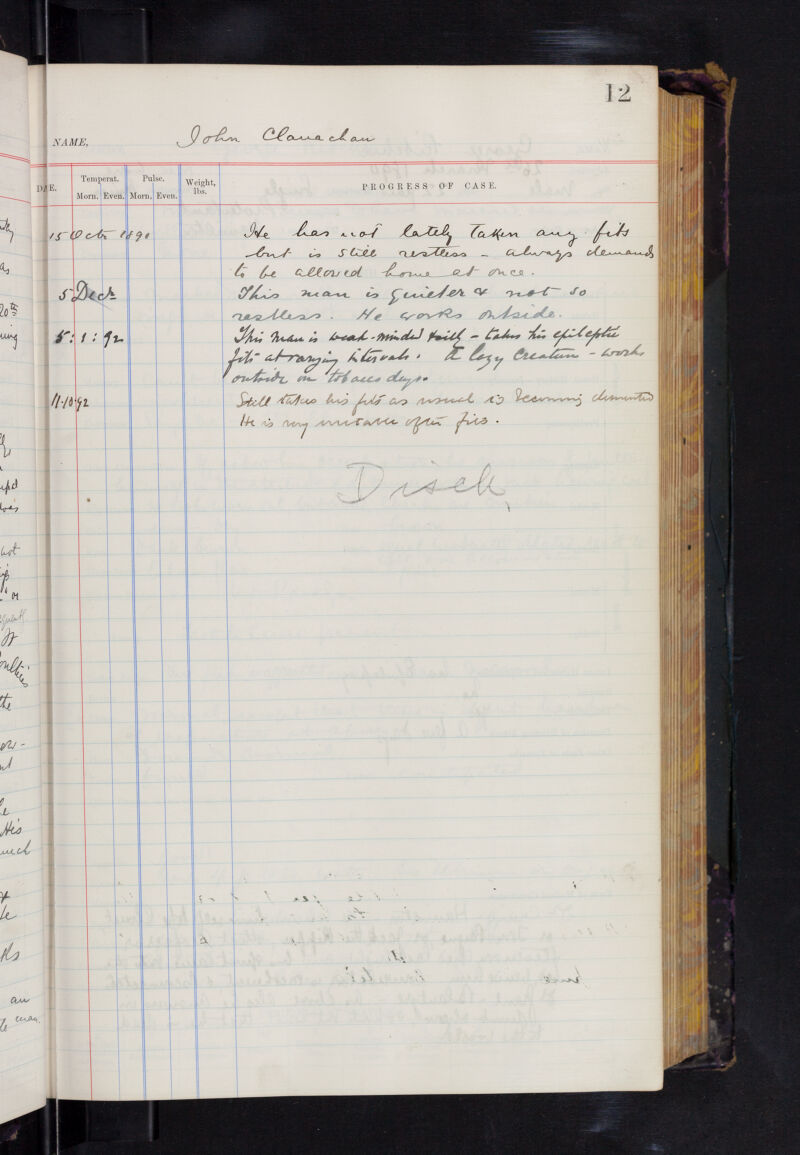 12
NAME, John Clanachan
DATE. Temperat. Morn. Even. Pulse. Morn. Even. Weight, lbs. PROGRESS OF CASE.
15 Octr 1890 He has not lately taken any fits
but is still restless - always demands
to be allowed home at once.
5 Decr This man is quieter & not so
restless. He works outside.
5:1:92 This man is weak-minded & silly - takes his epileptic
fits at varying intervals. A lazy creature - works
outside on tobacco days.
11.10.92 Still takes his fits as usual is becoming demented
He is very irritable after fits.
Disch.